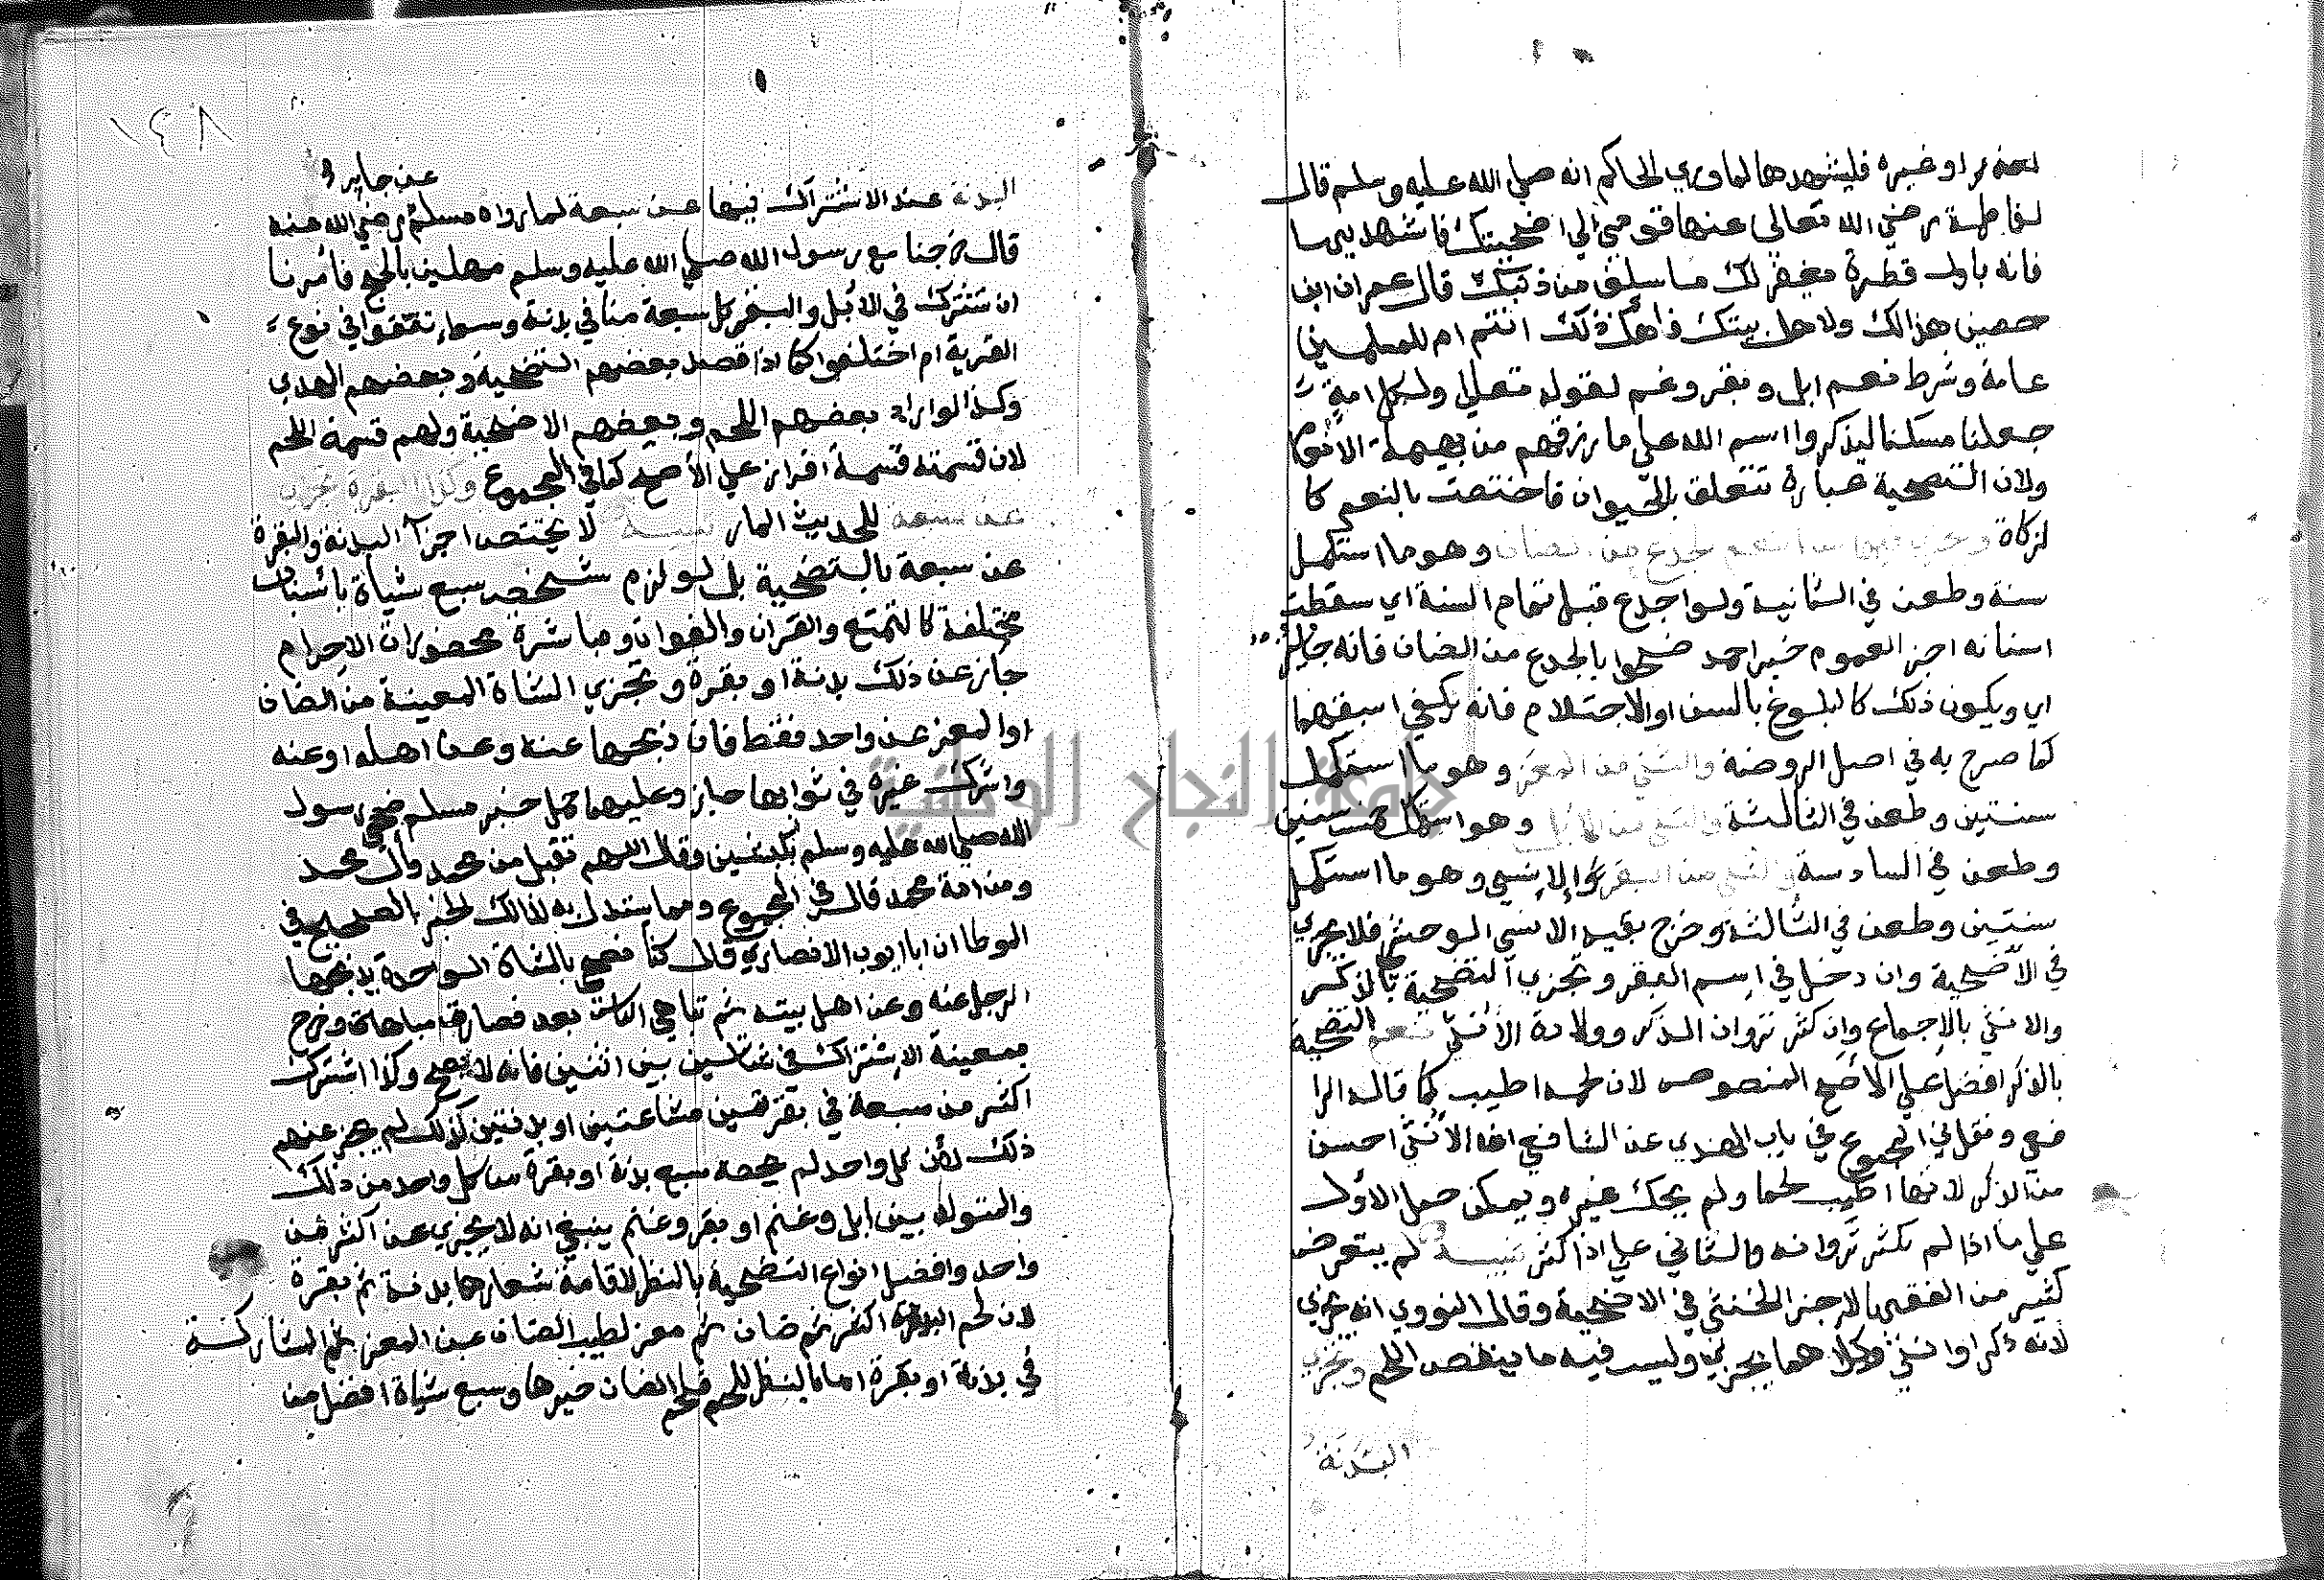 لعذر او غيره فليشهدها لما روي الحاكم انه صلى الله عليه وسلم قال
لفاطمة رضي الله تعالى عنها قومي الى اضحيتك فاشهديها
فانه باول قطرة من دمها يغفر لك ما سلف من ذنبك قال عمران ابن
حصين هذا لك ولاهل بيتك فاهل ذلك انتم ام للمسلمين
عامة وشرط نعم ابل وبقر وغنم لقوله تعالى ولكل امة
جعلنا منسكا ليذكروا اسم الله على ما رزقهم من بهيمة الانعام
ولان التضحية عبادة تتعلق بالحيوان فاختصت بالنعم كا
لزكاة وهو ما استكمل
سنة وطعن في الثانية ولو اجدع قبل تمام السنة اي سقطت
اسنانه اجزا لعموم خبر احمد ضحوا بالجدع من الضان فانه جائز
اي ويكون ذلك كالبلوغ بالسن او الاحتلام فانه يكفي اسبقهما
كما صرح به في اصل الروضة والثني من المعز وهو ما استكمل
سنتين وطعن في الثالثة والثني من الابل وهو استكمل خمس سنين
وطعن في السادسة والثني من البقر الانسي وهو ما استكمل
سنتين وطعن في الثالثة وخرج بقيد الانسي الوحشي فلا يجزي
في الاضحية وان دخل في اسم البقر وتجزي التضحية بالذكر
والانثى بالاجماع وان كثر نزوان الذكر وولادة الانثى نعم التضحية
بالذكر افضل على الاصح المنصوص لان لحمه اطيب كما قال الرا
فعي ونقل في المجموع في باب الهدي عن الشافعي انه الانثى احسن
من الذكر لانها اطيب لحما ولم يحك غيره ويمكن حمل الاول
على ما اذا لم يكثر نزوانه والثاني على اذا كثر تنبيه لم يتعرض
كثير من الفقها لاجزا الخنثى في الاضحية وقال النووي انه يجزي
لانه ذكر او انثى وكلاهما يجزي وليس فيه ما ينقص اللحم وتجزي
البدنة
١٤٨
عن جابر
البدنة عند الاشتراك فيها عن سبعة لما رواه مسلم رضي الله عنه
قال خرجنا مع رسول الله صلى الله عليه وسلم مهلين بالحج فامرنا
ان نشترك في الابل والبقر كل سبعة منا في بدنة وسواء اتفقوا في نوع
القربة ام اختلفوا كما اذا قصد بعضهم التضحية وبعضهم الهدي
وكذا لو اراد بعضهم اللحم وبعضهم الاضحية ولهم قسمة اللحم
لان قسمته قسمة افراز على الاصح كما في المجموع وكذا البقرة تجزي
عن سبعة للحديث المار تنبيه لا يختص اجزآ البدنة والبقرة
عن سبعة بالتضحية بل لو لزم شخص سبع شياة باسباب
مختلفة كالتمتع والقران والفوات ومباشرة محضورات الاحرام
جاز عن ذلك بدنة او بقرة وتجزي الشاة المعينة من الضان
او المعز عن واحد فقط فان ذبحها عنه وعن اهله او عنه
واشرك غيره في ثوابها جاز وعليهما حمل خبر مسلم ضحى رسول
الله صلى الله عليه وسلم بكبشين وقال اللهم تقبل من محمد وال محمد
ومن امة محمد قال في المجموع ومما يستدل به لذالك الخبر الصحيح في
الموطا ان ابا ايوب الانصاري قال كنا نضحي بالشاة الواحدة يذبحها
الرجل عنه وعن اهل بيته ثم تباهى الناس بعد فصارت مباهاة وخرج
بمعينة الاشتراك في شاتين بين اثنين فانه لا يصح وكذا اشترك
اكثر من سبعة في بقرتين مشاعتين او بدنتين كذلك لم يجز عنهم
ذلك لان كل واحد لم يخصه سبع بدنة او بقرة من كل واحد من ذلك
والمتولد بين ابل وغنم او بقر وغنم ينبغي انه لا يجزي عن اكثر من
واحد وافضل انواع التضحية بالنظر لاقامة شعارها بدنة ثم بقرة
لان لحم البدنة اكثر ثم ضان ثم معز لطيب الضان عن المعز ثم المشاركة
في بدنة او بقرة اما بالنظر للحم فلحم الضان خيرها وسبع شياة افضل من
جامعة النجاح الوطنية